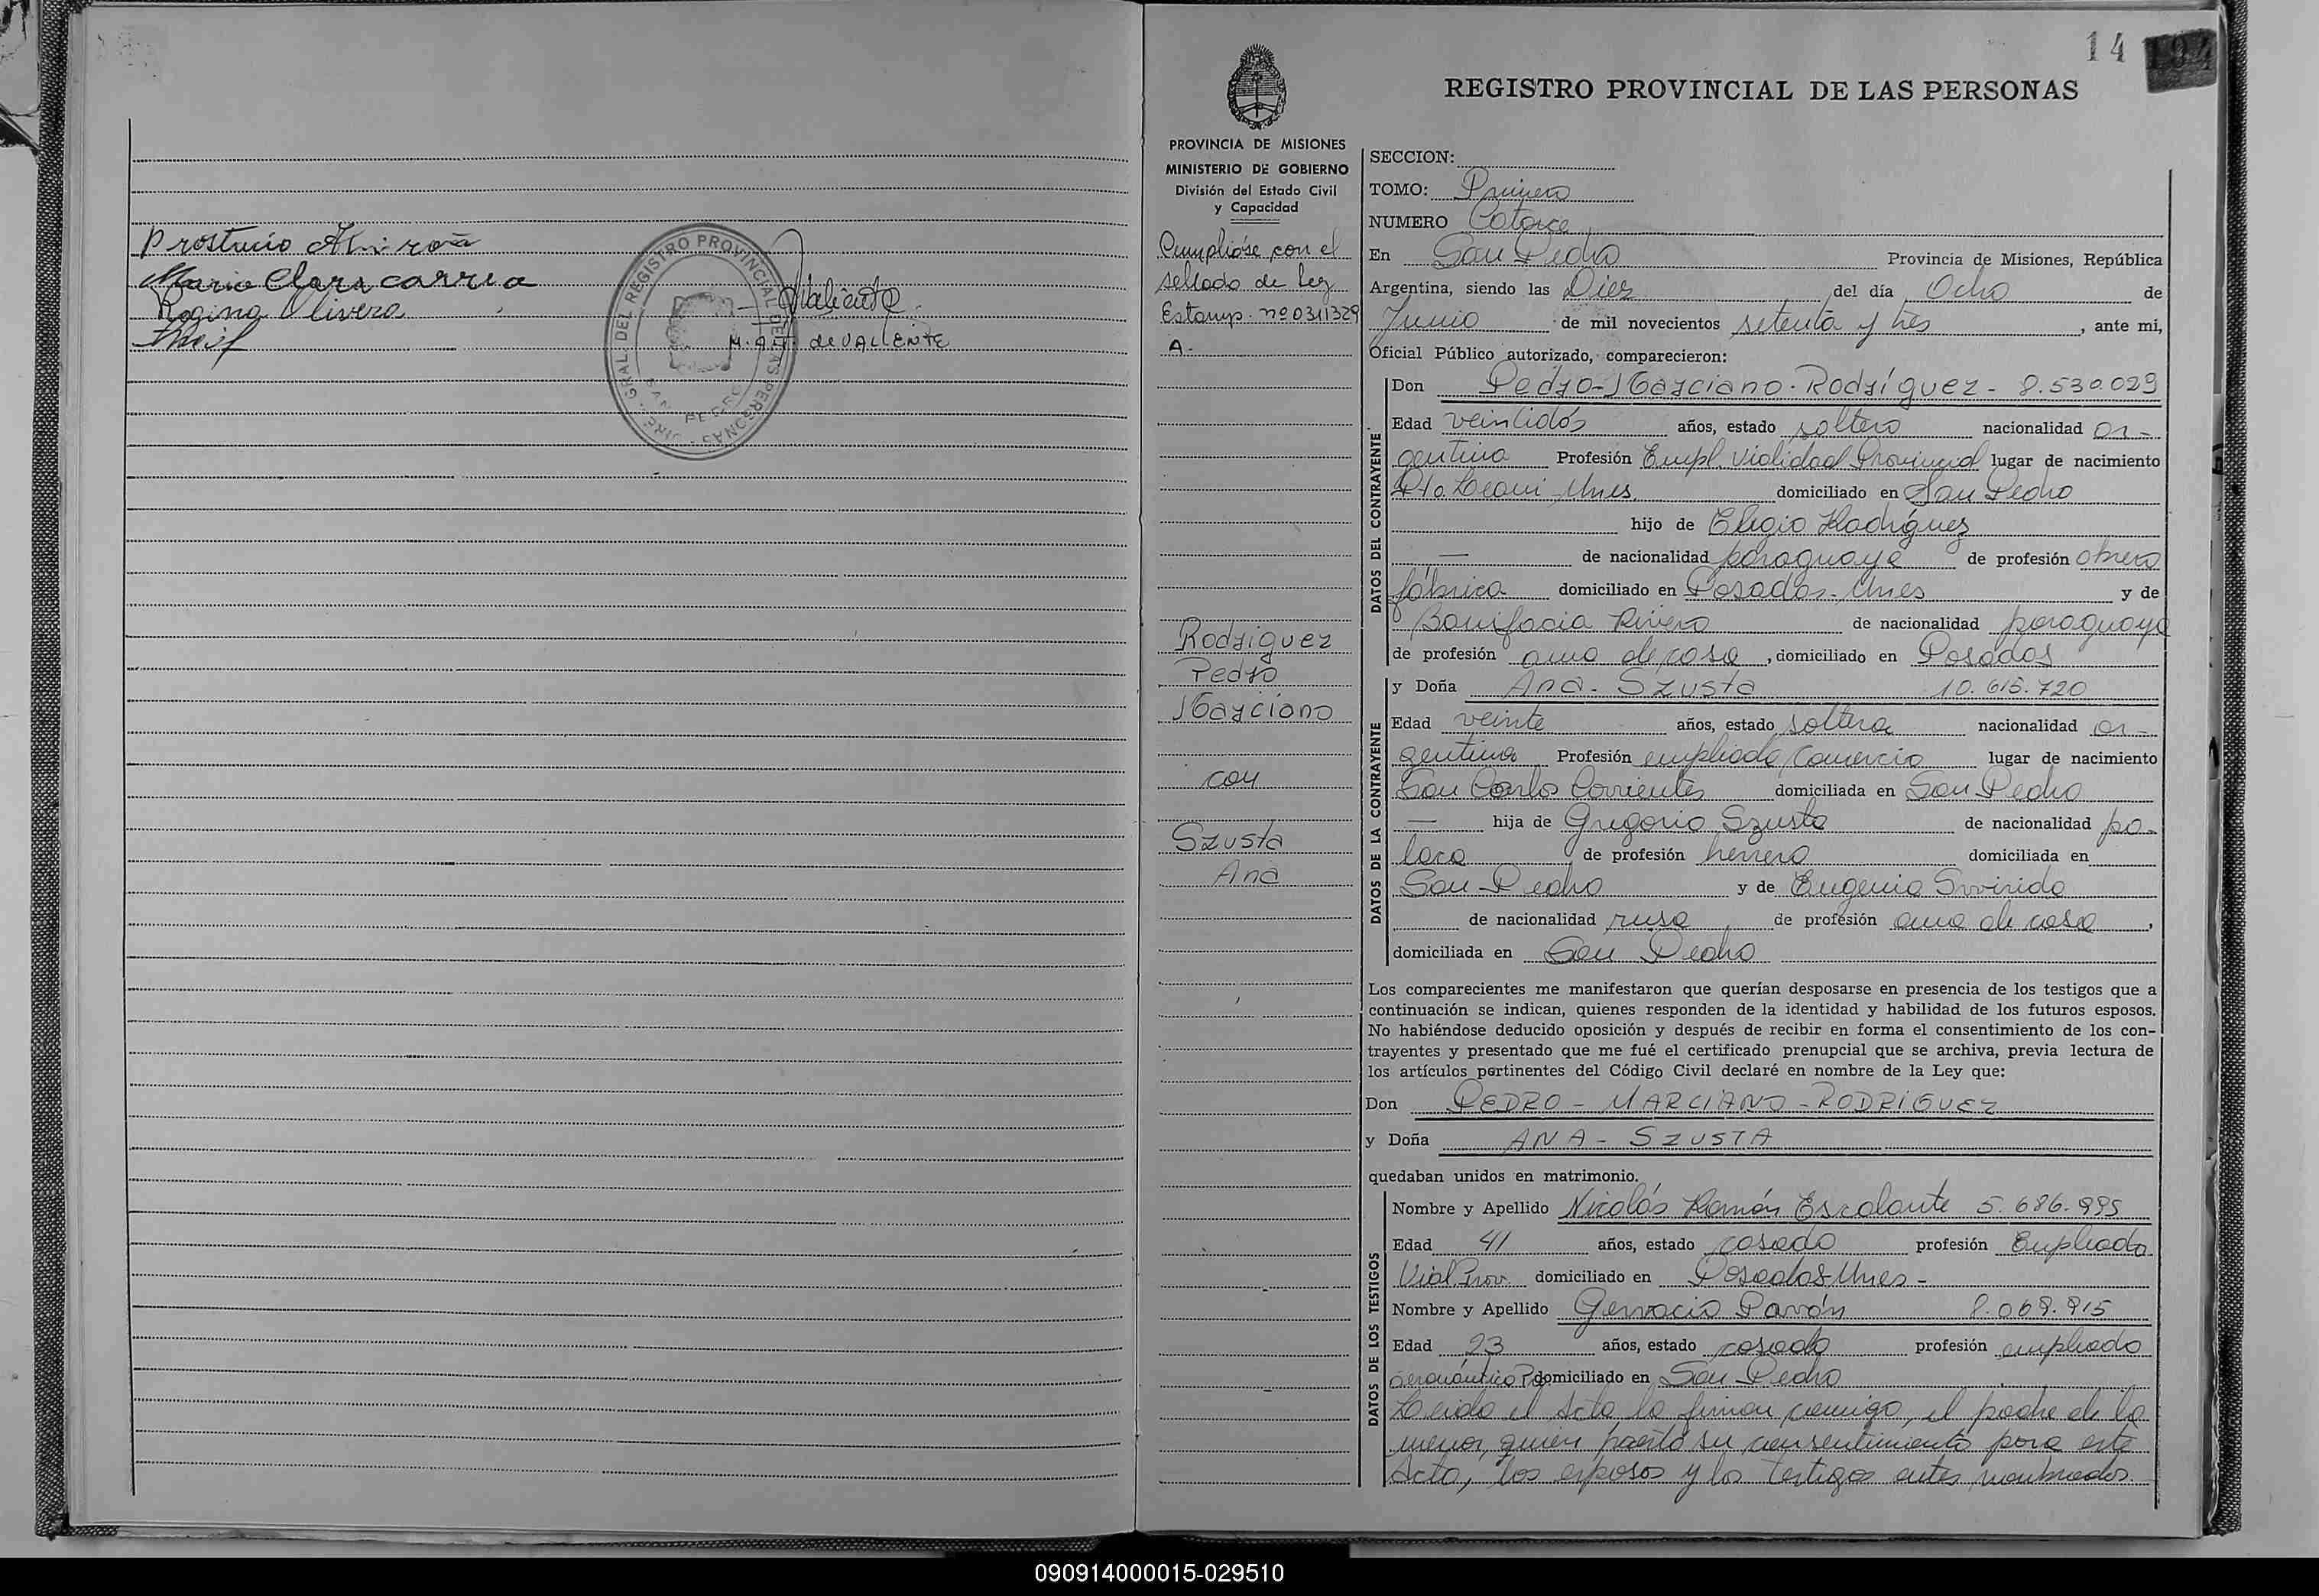 Maria Clara Carria
Regina Olivera
Valiente
M. A. T. de VALIENTE
REGISTRO PROVINCIAL DE LAS PERSONAS
SAN PEDRO
14
REGISTRO PROVINCIAL DE LAS PERSONAS
PROVINCIA DE MISIONES
MINISTERIO DE GOBIERNO
División del Estado Civil
y Capacidad
Cumplióse con el
sellado de Ley
Estamp. nº 0311329
A.-
Rodriguez
Pedro
Marciano
con
Szusta
Ana
SECCION:
TOMO: Primero
NUMERO Catorce
En San Pedro Provincia de Misiones, República
Argentina, siendo las Diez del día Ocho de
Junio de mil novecientos setenta y tres, ante mi,
Oficial Público autorizado, comparecieron:
DATOS DEL CONTRAYENTE
Don Pedro-Marciano-Rodríguez- 8.530.029
Edad veintidós años, estado soltero nacionalidad ar-
gentina Profesión Empl. Vialidad Provincial lugar de nacimiento
Pto. Leoni-Mnes domiciliado en San Pedro
hijo de Eligio Rodríguez
— de nacionalidad paraguaya de profesión obrero
fábrica domiciliado en Posadas-Mnes y de
Bonifacia Rivero de nacionalidad paraguaya
de profesión ama de casa, domiciliado en Posadas
DATOS DE LA CONTRAYENTE
y Doña Ana-Szusta 10.615.720
Edad veinte años, estado soltera nacionalidad ar-
gentina Profesión empleada Comercio lugar de nacimiento
San Carlos Corrientes domiciliada en San Pedro
— hija de Gregorio Szusta de nacionalidad po-
laca de profesión herrero domiciliada en
San Pedro y de Eugenia Swirida
de nacionalidad rusa de profesión ama de casa,
domiciliada en San Pedro
Los comparecientes me manifestaron que querían desposarse en presencia de los testigos que a
continuación se indican, quienes responden de la identidad y habilidad de los futuros esposos.
No habiéndose deducido oposición y después de recibir en forma el consentimiento de los con-
trayentes y presentado que me fué el certificado prenupcial que se archiva, previa lectura de
los artículos pertinentes del Código Civil declaré en nombre de la Ley que:
Don PEDRO-MARCIANO-RODRIGUEZ
y Doña ANA-SZUSTA
quedaban unidos en matrimonio.
DATOS DE LOS TESTIGOS
Nombre y Apellido Nicolás Ramón Escalante 5.686.995
Edad 41 años, estado casado profesión Empleado
Vial Prov. domiciliado en Posadas-Mnes-
Nombre y Apellido Gervacio Pavón 8.069.815
Edad 23 años, estado casado profesión empleado
aeronáutico domiciliado en San Pedro
Leida el Acta, la firman conmigo, el padre de la
menor, quien prestó su consentimiento para este
Acto, los esposos y los testigos antes nombrados.
090914000015-029510